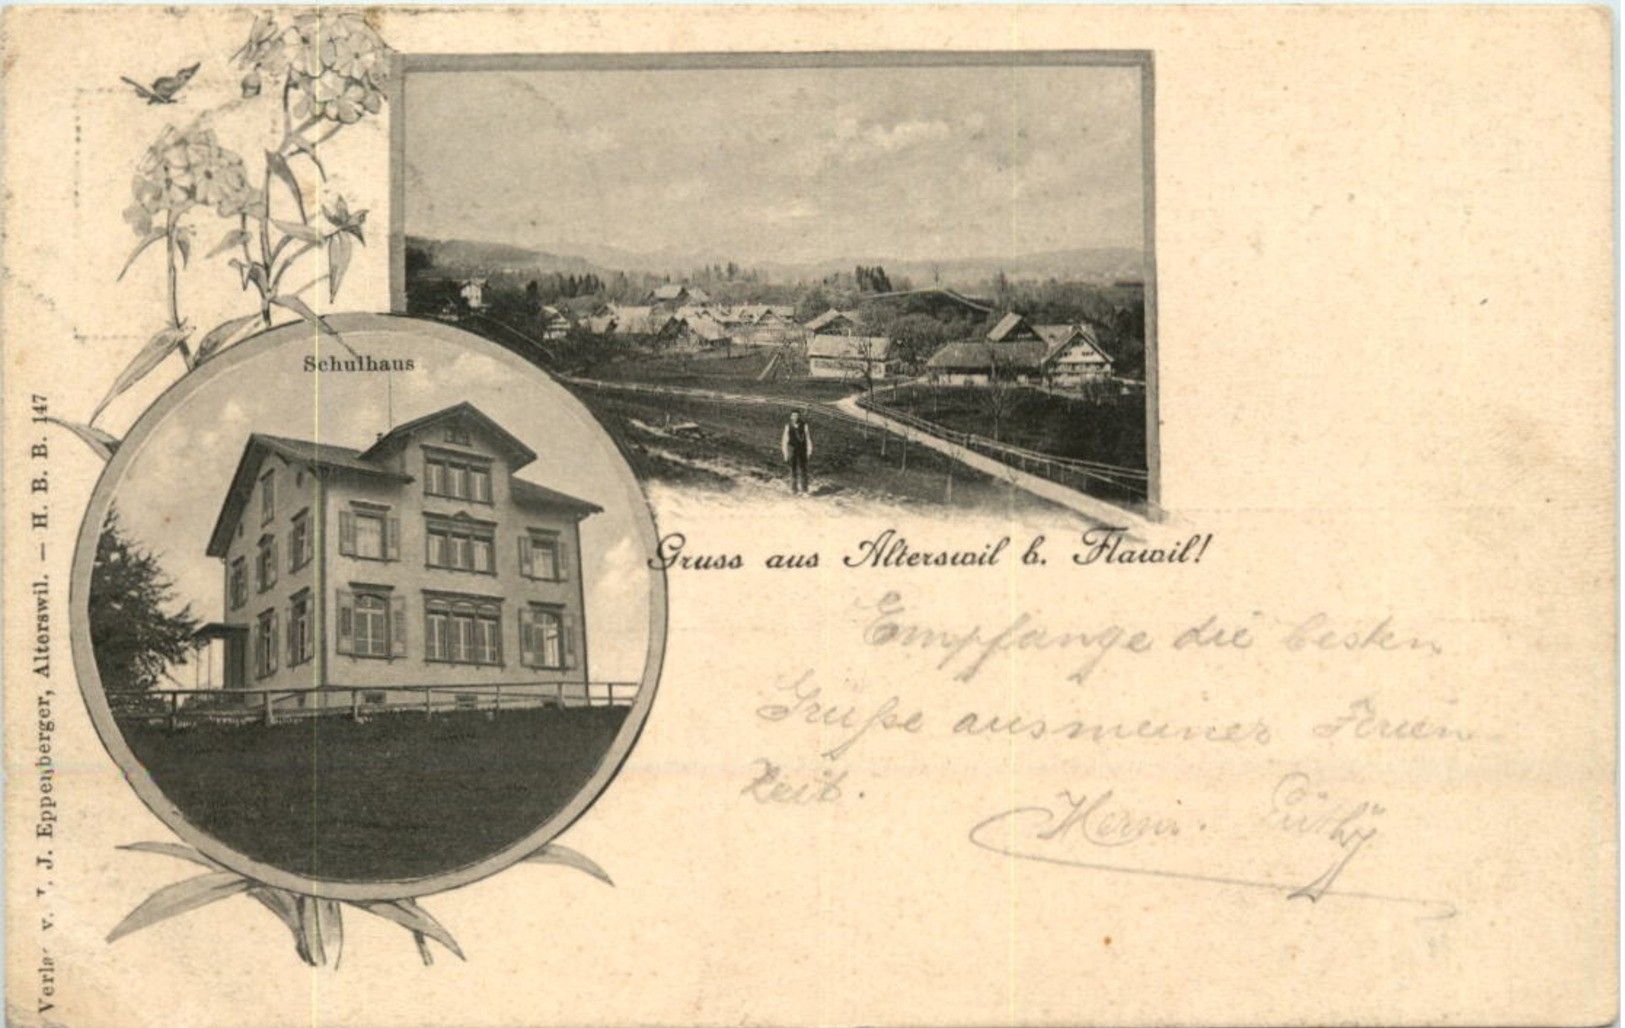 Schulhaus
Gruss aus Alterswil b. Flawil!
Empfange die besten
Grüße aus meiner Ferien-
zeit.
Herm. Lüthy
J. Eppenberger, Alterswil. — H. B. B. 147